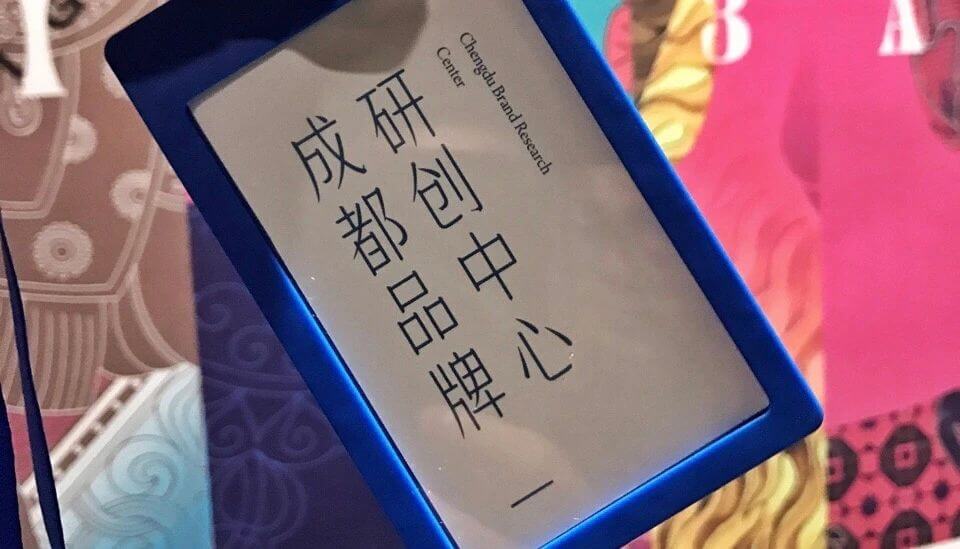 成都品牌
研创中心
Chengdu Brand Research
Center